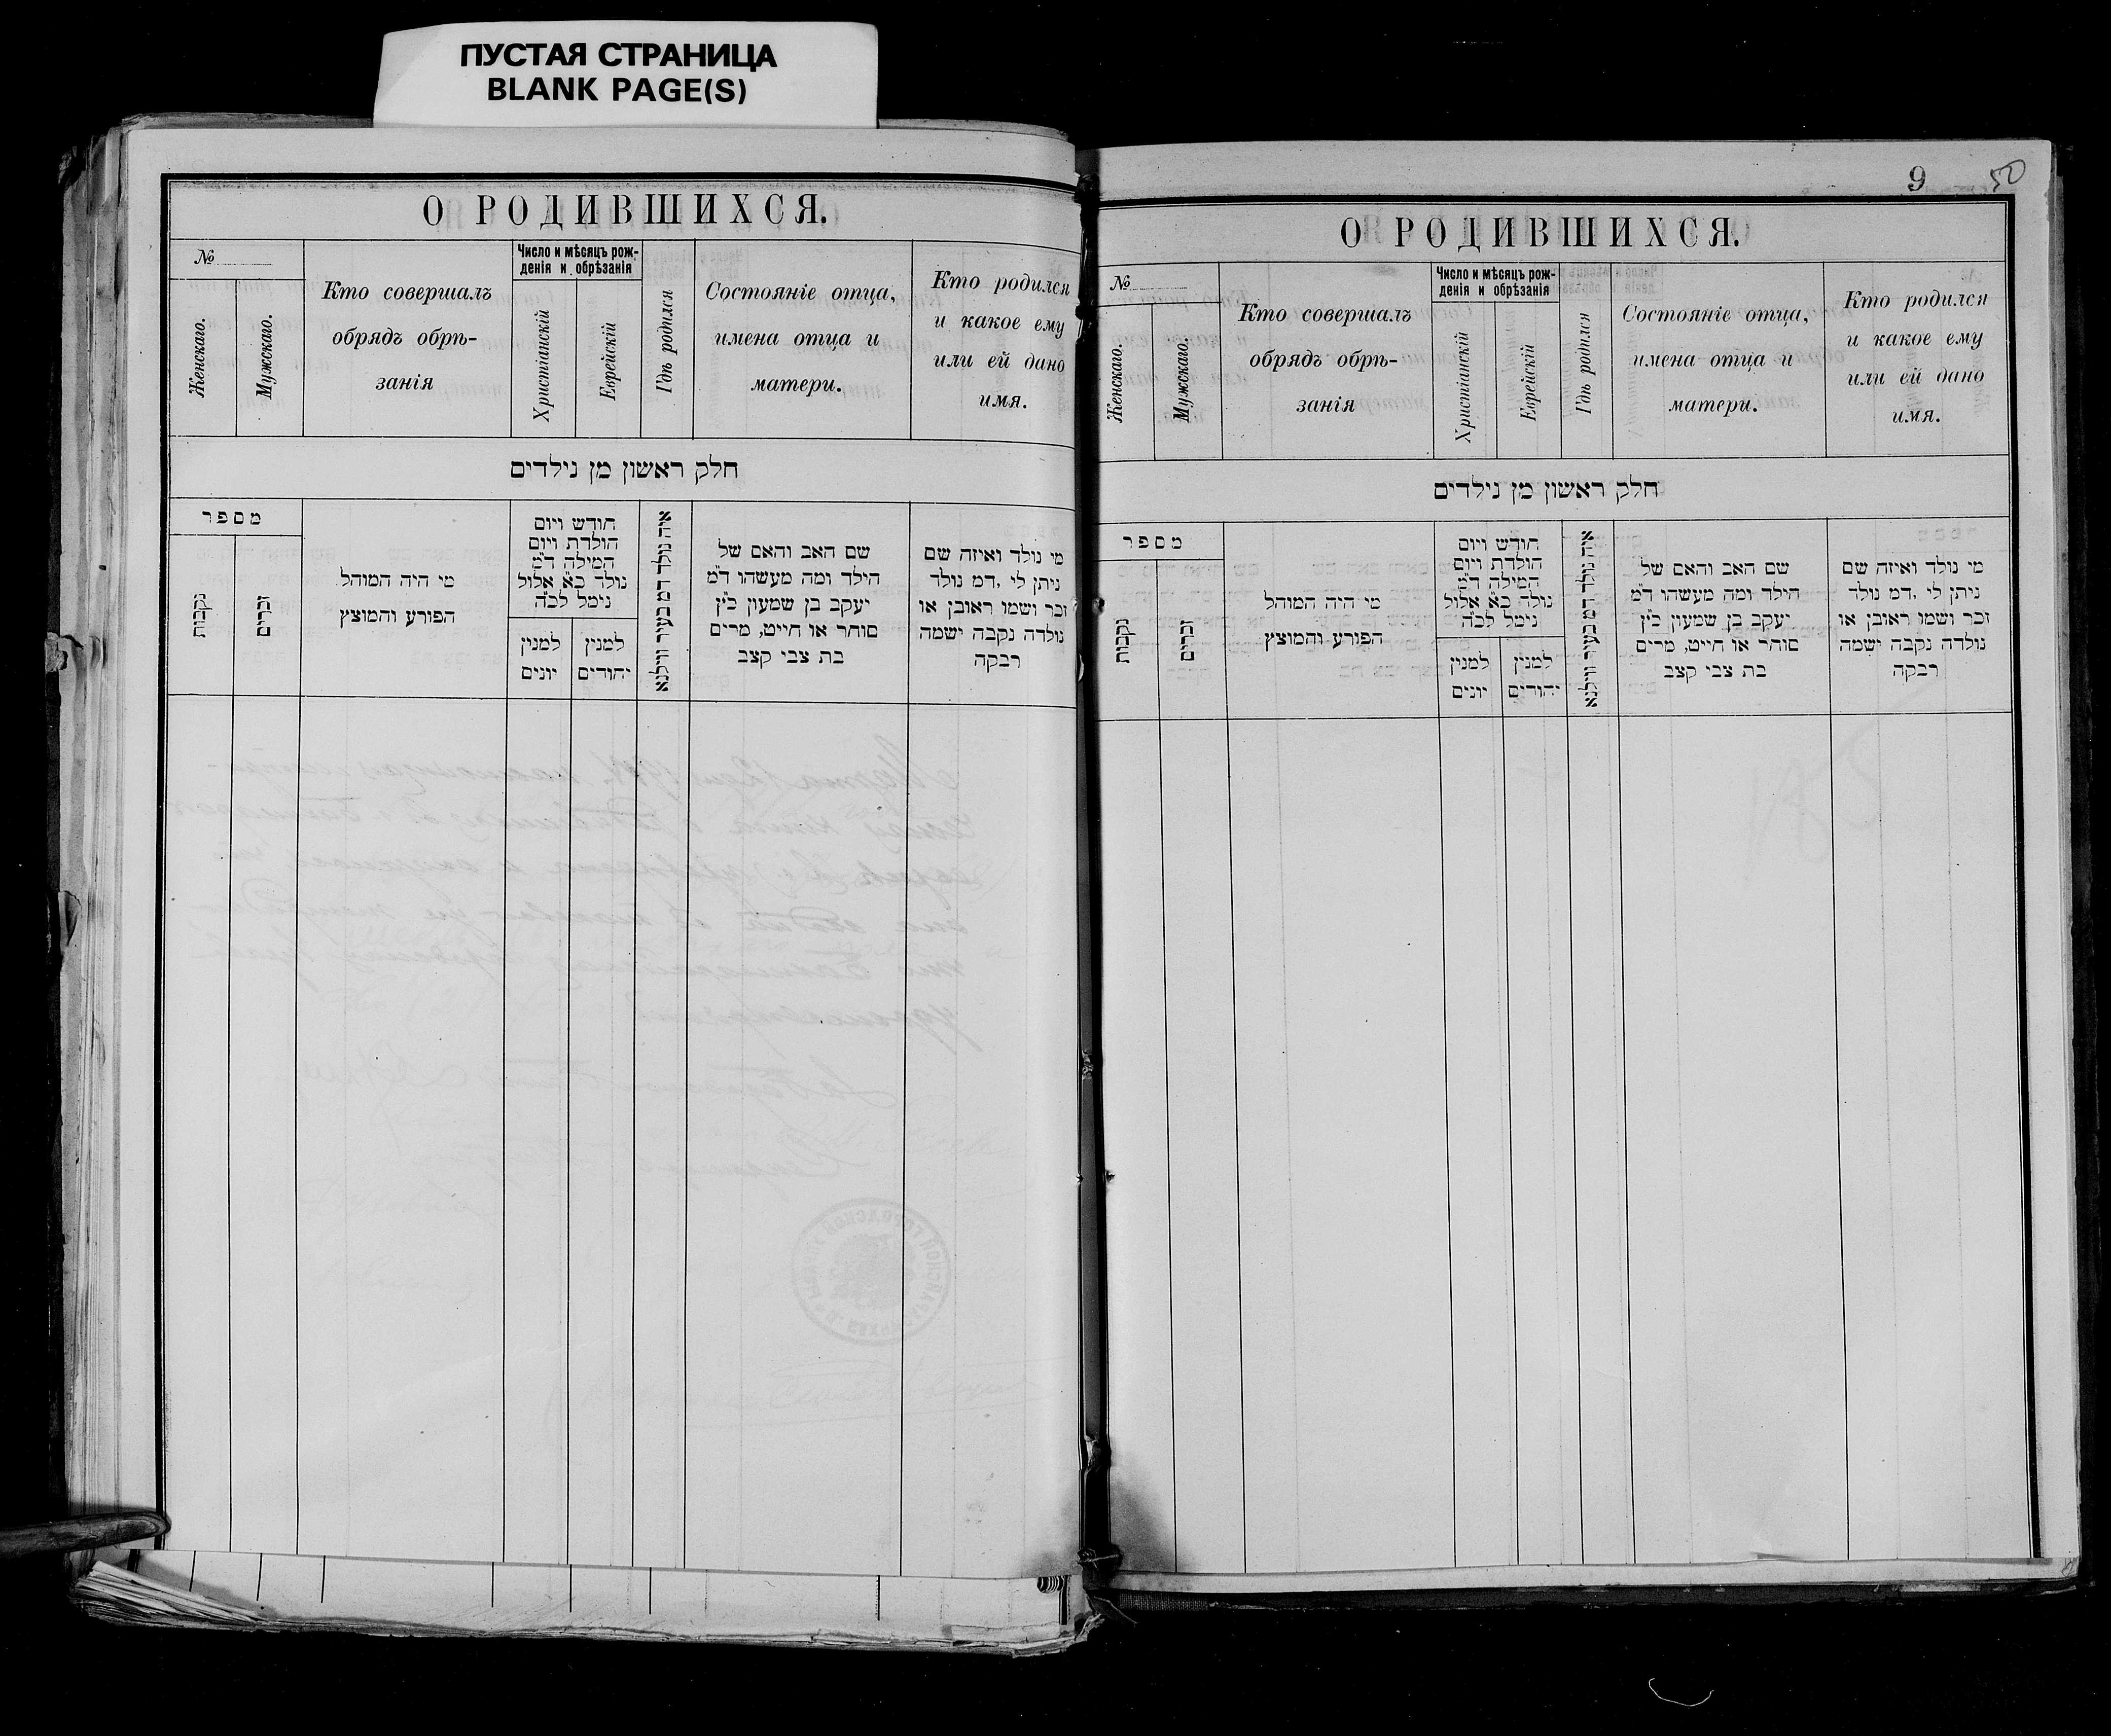 ПУСТАЯ СТРАНИЦА
BLANK PAGE(S)
О РОДИВШИХСЯ.
№
Женскаго.
Мужскаго.
Кто совершалъ
обрядъ обрѣ-
занія
Число и мѣсяцъ рож-
денія и обрѣзанія
Христіанскій
Еврейскій
Гдѣ родился
Состояніе отца,
имена отца и
матери.
Кто родился
и какое ему
или ей дано
имя.
חלק ראשון מן נילדים
מספר
נקבות
זכרים
מי היה המוהל
הפורע והמוצץ
חודש ויום
הולדת ויום
המילה ד״מ
נולד כ״א אלול
נימל לכ״ה
למנין
יונים
למנין
יהודים
איה נולד דמ בעיר ווילנא
שם האב והאם של
הילד ומה מעשהו ד״מ
יעקב בן שמעון כ״ץ
סוחר או חייט, מרים
בת צבי קצב
מי נולד ואיזה שם
ניתן לי ,דמ נולד
זכר ושמו ראובן או
נולדה נקבה ישמה
רבקה
9
50
О РОДИВШИХСЯ.
№
Женскаго.
Мужскаго.
Кто совершалъ
обрядъ обрѣ-
занія
Число и мѣсяцъ рож-
денія и обрѣзанія
Христіанскій
Еврейскій
Гдѣ родился
Состояніе отца,
имена отца и
матери.
Кто родился
и какое ему
или ей дано
имя.
חלק ראשון מן נילדים
מספר
נקבות
זכרים
מי היה המוהל
הפורע והמוצץ
חודש ויום
הולדת ויום
המילה ד״מ
נולד כ״א אלול
נימל לכ״ה
למנין
יונים
למנין
יהודים
איה נולד דמ בעיר ווילנא
שם האב והאם של
הילד ומה מעשהו ד״מ
יעקב בן שמעון כ״ץ
סוחר או חייט, מרים
בת צבי קצב
מי נולד ואיזה שם
ניתן לי ,דמ נולד
זכר ושמו ראובן או
נולדה נקבה ישמה
רבקה